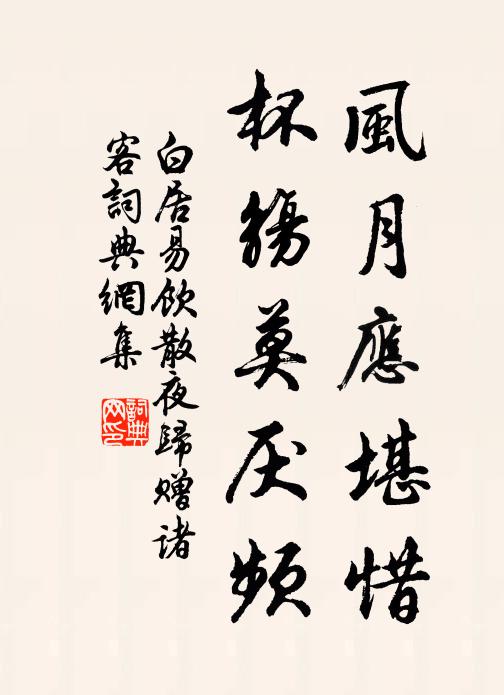 風月應堪惜
杯觴莫厌頻
白居易飲散夜歸赠諸
客詞典網集
詞典
网印